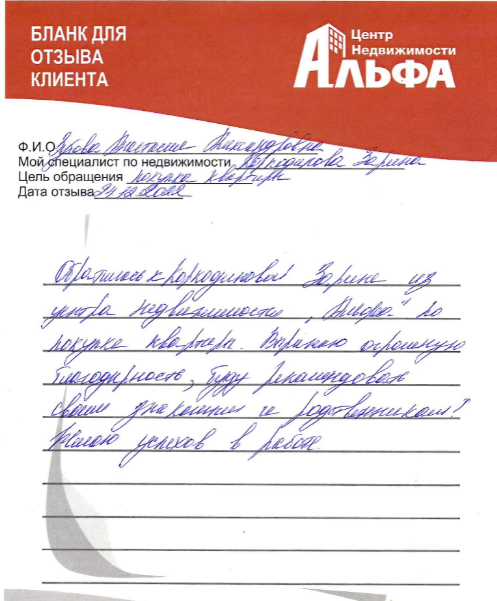 БЛАНК ДЛЯ
ОТЗЫВА
КЛИЕНТА
Центр
Недвижимости
АЛЬФА
Ф.И.О
Мой специалист по недвижимости Зарина
Цель обращения покупка квартиры
Дата отзыва 24.12.2022
Обратилась к Зарине из
центра недвижимости „Альфа“ по
покупке квартиры. Выражаю огромную
благодарность, буду рекомендовать
своим знакомым и родственникам!
Желаю успехов в работе.